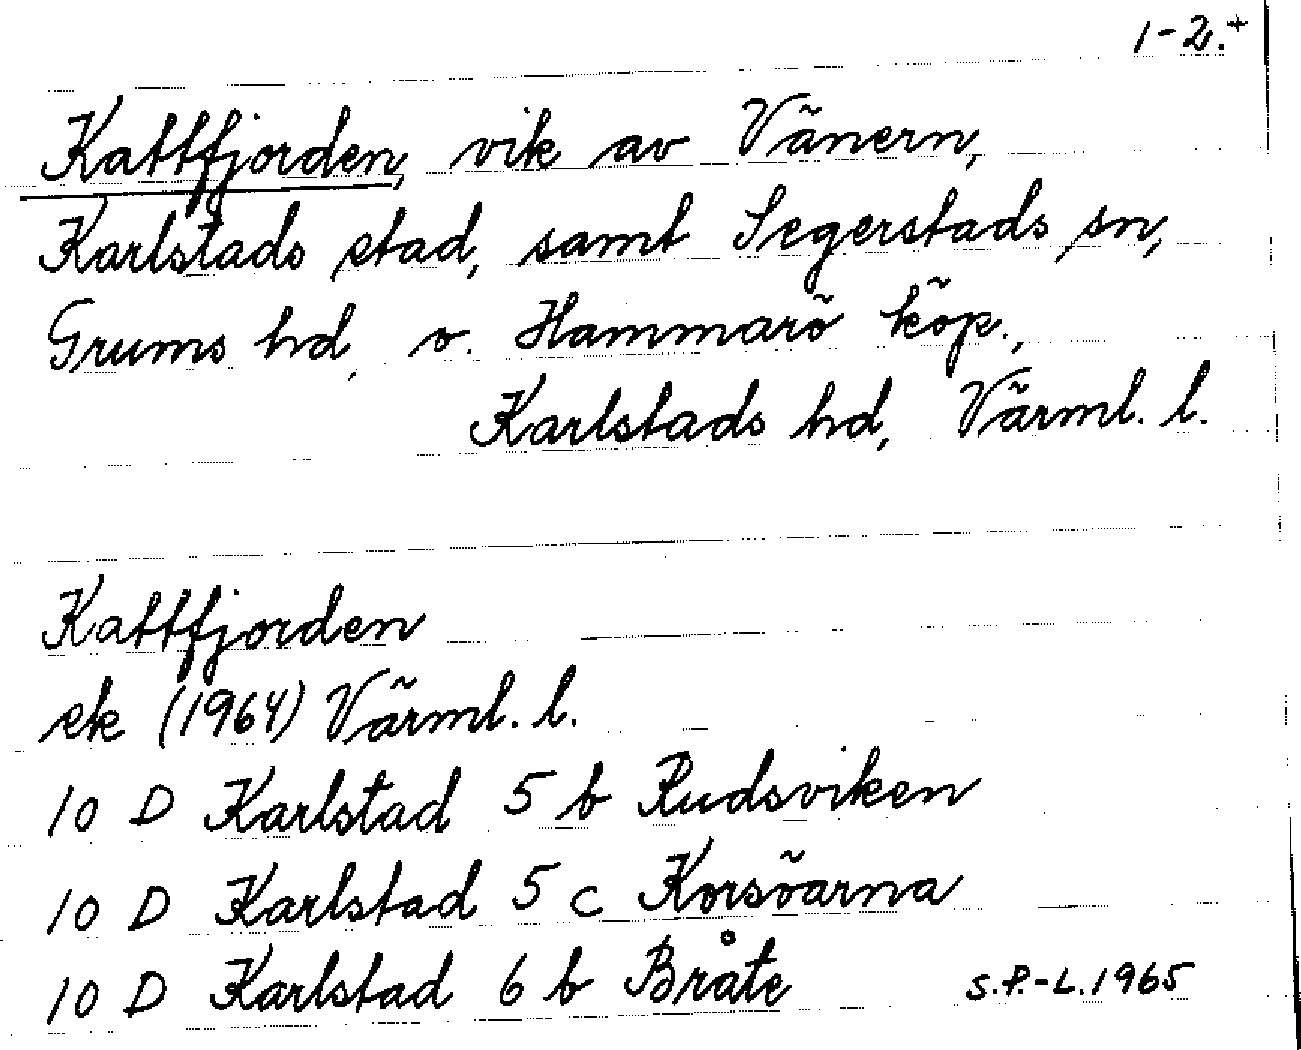 1-2.+
Kattfjorden, vik av Vänern,
Karlstads stad, samt Segerstads sn,
Grums hd, o. Hammarö köp.,
Karlstads hd, Värml. l.
Kattfjorden
ek (1964) Värml. l.
10 D Karlstad 5 b Rudsviken
10 D Karlstad 5 c Korsöarna
10 D Karlstad 6 b Bråte
S.P.-L. 1965